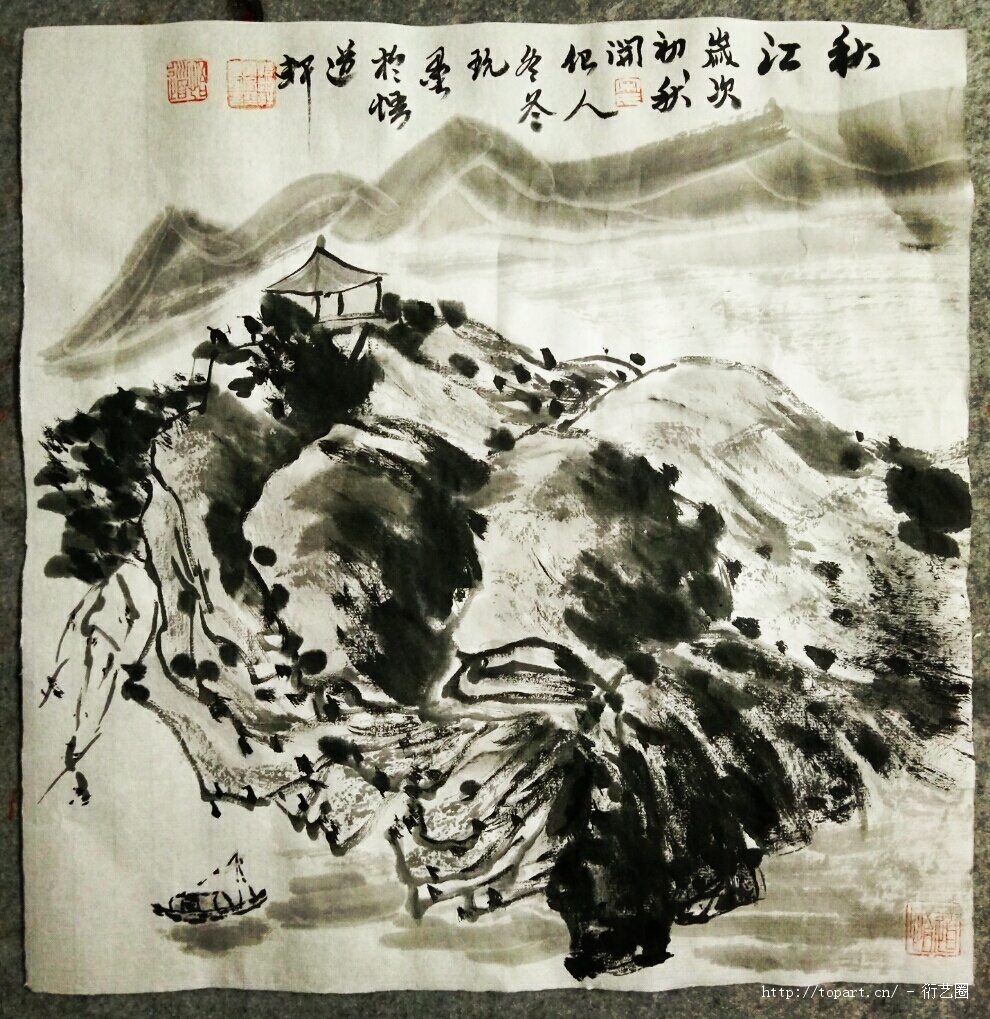 秋
江
歲次
初秋
闲
仙人
冬冬
玩
墨
於悟
道
軒
http://topart.cn/ - 衍艺圈